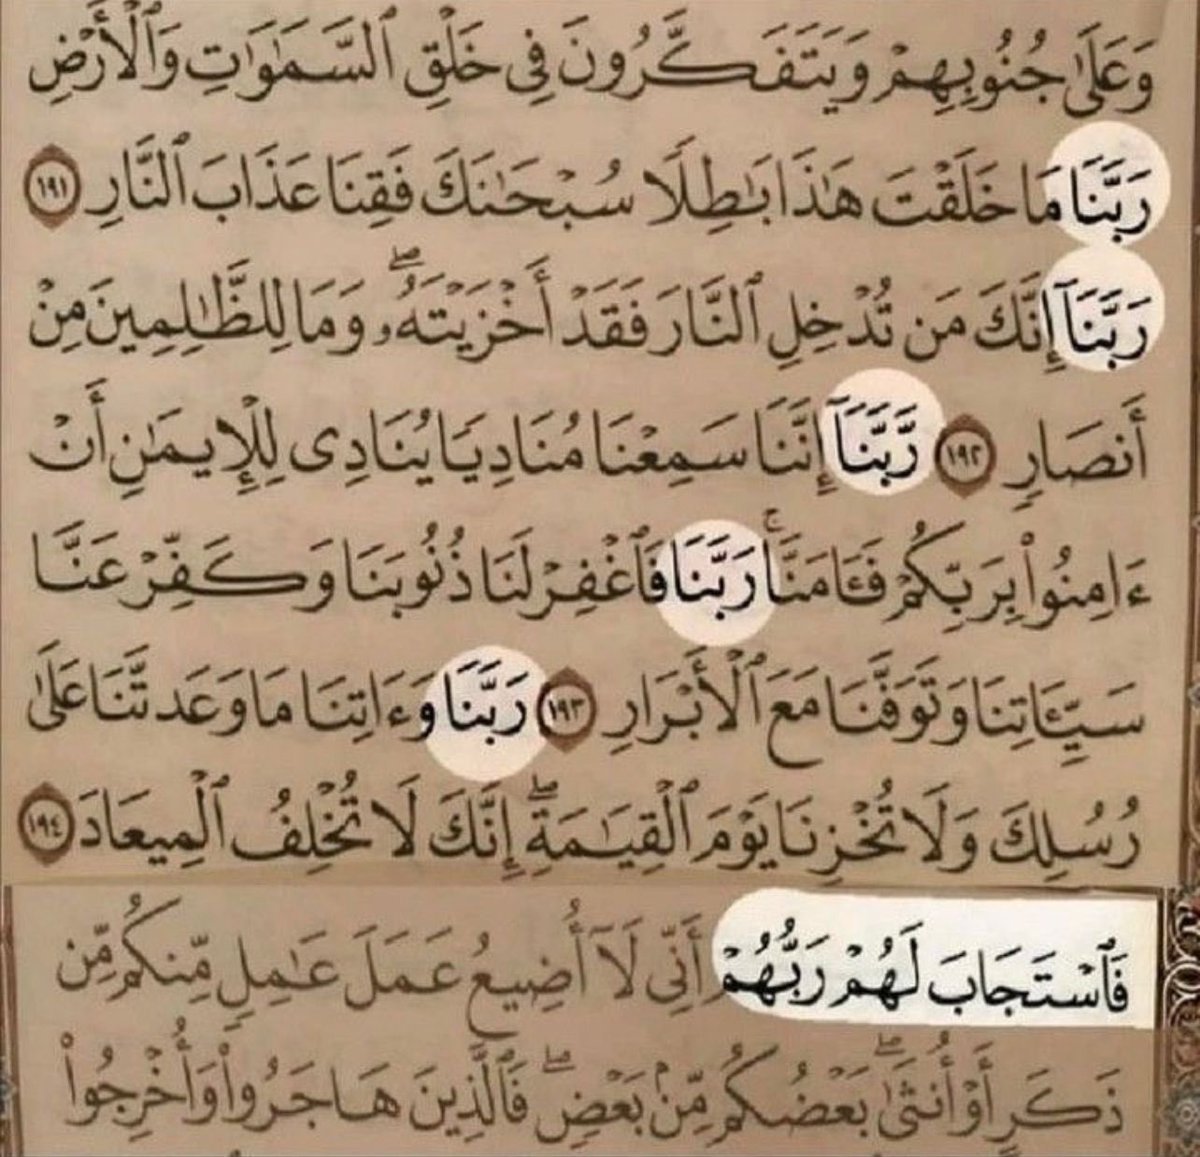 وَعَلَىٰ جُنُوبِهِمْ وَيَتَفَكَّرُونَ فِى خَلْقِ ٱلسَّمَـٰوَٰتِ وَٱلْأَرْضِ
رَبَّنَا مَا خَلَقْتَ هَـٰذَا بَـٰطِلًا سُبْحَـٰنَكَ فَقِنَا عَذَابَ ٱلنَّارِ ١٩١
رَبَّنَآ إِنَّكَ مَن تُدْخِلِ ٱلنَّارَ فَقَدْ أَخْزَيْتَهُۥ ۖ وَمَا لِلظَّـٰلِمِينَ مِنْ
أَنصَارٍ ١٩٢ رَّبَّنَآ إِنَّنَا سَمِعْنَا مُنَادِيًا يُنَادِى لِلْإِيمَـٰنِ أَنْ
ءَامِنُوا۟ بِرَبِّكُمْ فَـَٔامَنَّا ۚ رَبَّنَا فَٱغْفِرْ لَنَا ذُنُوبَنَا وَكَفِّرْ عَنَّا
سَيِّـَٔاتِنَا وَتَوَفَّنَا مَعَ ٱلْأَبْرَارِ ١٩٣ رَبَّنَا وَءَاتِنَا مَا وَعَدتَّنَا عَلَىٰ
رُسُلِكَ وَلَا تُخْزِنَا يَوْمَ ٱلْقِيَـٰمَةِ ۖ إِنَّكَ لَا تُخْلِفُ ٱلْمِيعَادَ ١٩٤
فَٱسْتَجَابَ لَهُمْ رَبُّهُمْ أَنِّى لَآ أُضِيعُ عَمَلَ عَـٰمِلٍ مِّنكُم مِّن
ذَكَرٍ أَوْ أُنثَىٰ ۖ بَعْضُكُم مِّنۢ بَعْضٍ ۖ فَٱلَّذِينَ هَاجَرُوا۟ وَأُخْرِجُوا۟